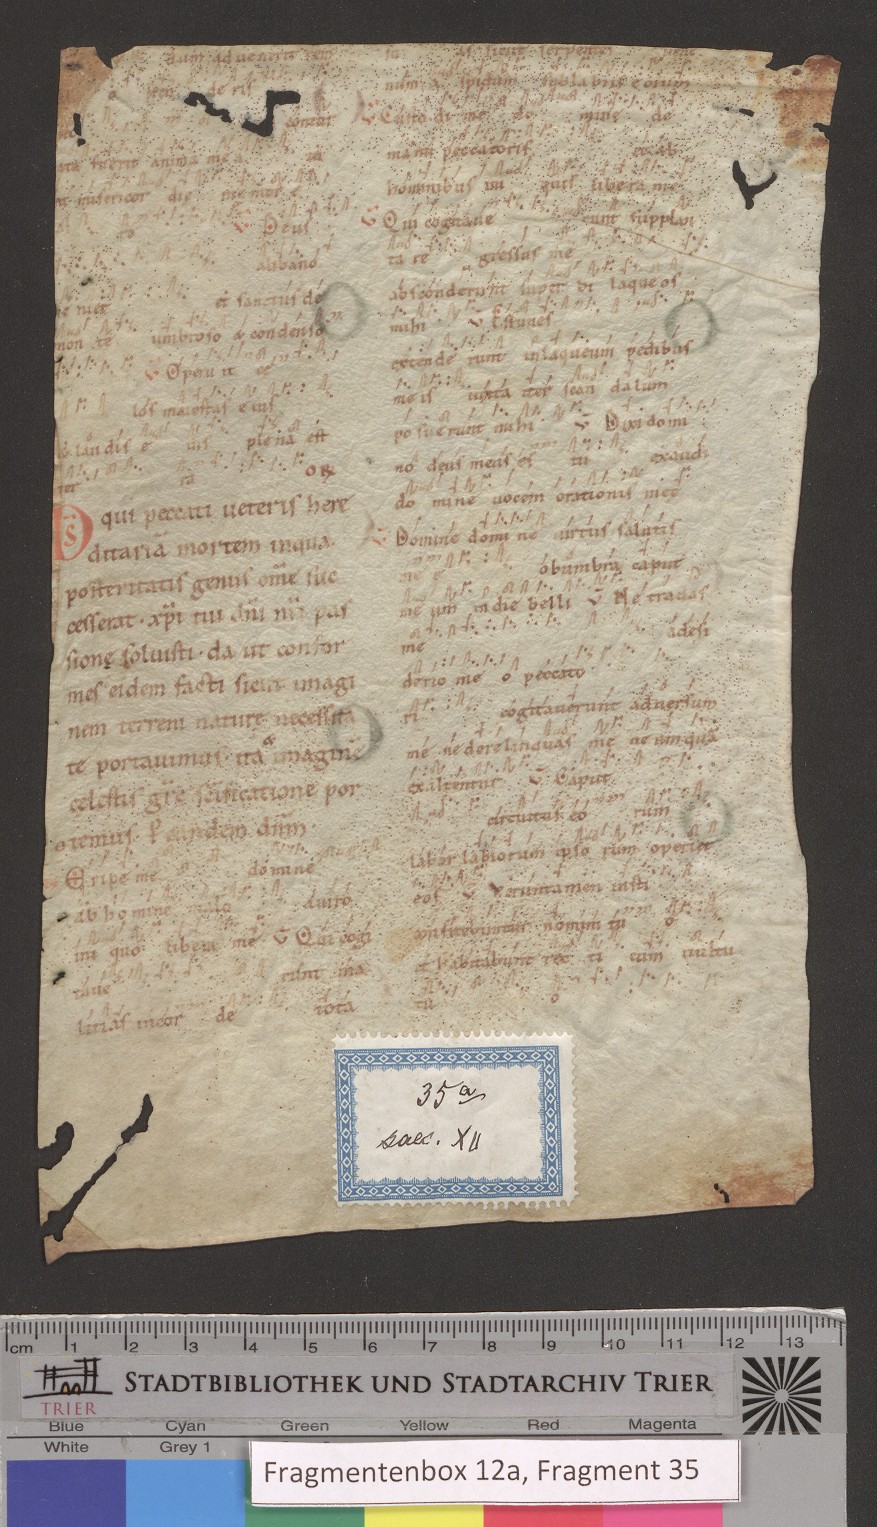 dum adveneris
contur
ata fuerit anima mea
misericor die memor e
ro V Deus
a libano
ue niet et sanctus de
mon te umbroso & condenso
V Operu it ce
los maiestas eius
& laudis e ius plena est
ter ra OR
DS qui peccati ueteris here
ditariā mortem inqua
posteritatis genus om̄e suc
cesserat · xp̄i tui dn̄i nr̄i pas
sione soluisti · da ut confor
mes eidem facti sicut imagi
nem terreni nature necessita
te portauimus · ita & imaginē
celestis gr̄e sc̄ificatione por
temus · P eundem dn̄m
Eripe me domine
ab homine malo a uiro
ini quo libera me V Qui cogi
taue runt ma
litias in cor de tota
su as sicut serpentes
num a spidum sub labiis eorum
V Custo di me do mine de
manu peccatoris et ab
hominibus ini quis libera me
V Qui cogitaue runt supplan
ta re gressus me
absconderunt super bi laqueos
mihi V Et funes
extende runt in laqueum pedibus
me is iuxta iter scan dalum
po sue runt mihi V Dixi domi
no deus meus es tu exaudi
do mine uocem orationis mee
V Domine domi ne uirtus salutis
me e obumbra caput
me um in die belli V Ne tradas
me a desi
derio me o peccato
ri cogitauerunt aduersum
me ne derelinquas me ne umquā
exaltentur V Caput
circuitus eo rum
labor labiorum ipso rum operiet
eos V Veruntamen iusti
confitebuntur nomini tu o
et habitabunt rec ti cum uultu
tu o
35a
saec. XII
cm 1 2 3 4 5 6 7 8 9 10 11 12 13
TRIER
STADTBIBLIOTHEK UND STADTARCHIV TRIER
Blue Cyan Green Yellow Red Magenta
White Grey 1
Fragmentenbox 12a, Fragment 35